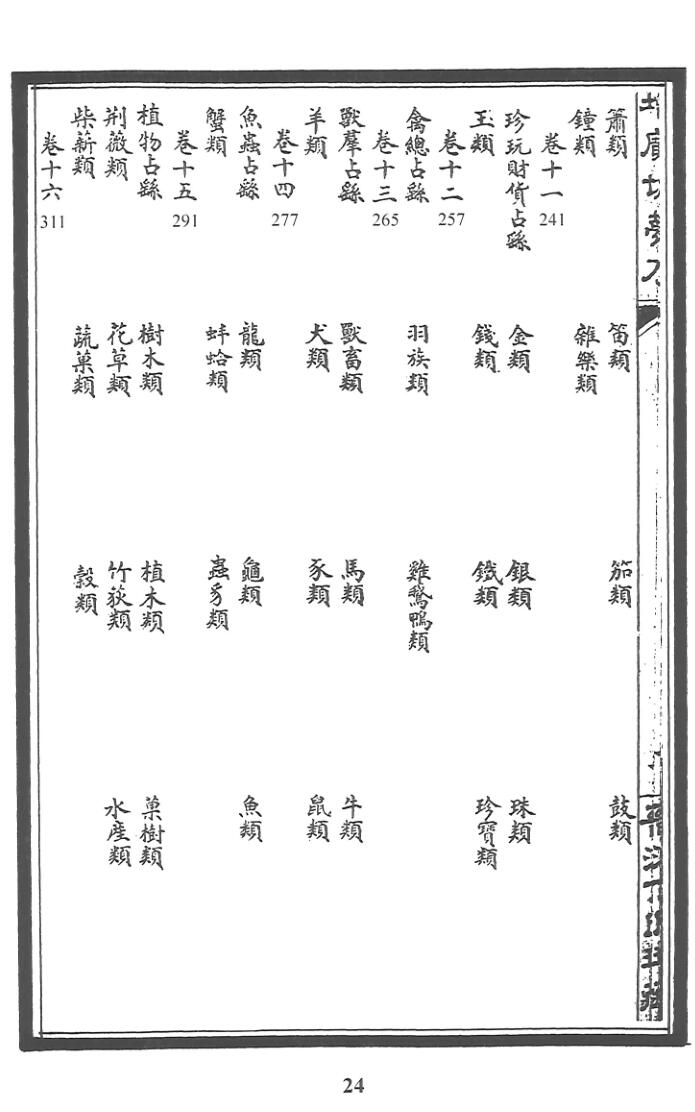 簫類 笛類 笳類 鼓類
鐘類 雜樂類
卷十一 241
珍玩財貨占繇 金類 銀類 珠類
玉類 錢類 鐵類 珍寶類
卷十二 257
禽總占繇 羽族類 雞鶩鴨類
卷十三 265
獸羣占繇 獸畜類 馬類 牛類
羊類 犬類 豕類 鼠類
卷十四 277
魚蟲占繇 龍類 龜類 魚類
蟹類 蚌蛤類 蟲豸類
卷十五 291
植物占繇 樹木類 植木類 菓樹類
荆薇類 花草類 竹荻類 水產類
柴薪類 蔬菓類 穀類
卷十六 311
24